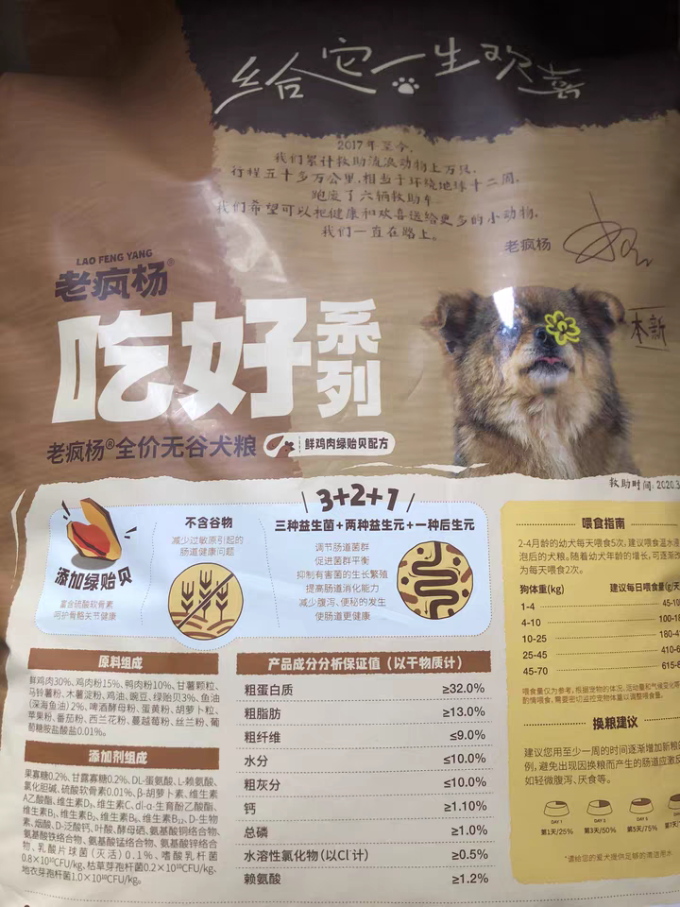 给它一生欢喜
2017年至今,
我们累计救助流浪动物上万只,
行程五十多万公里,相当于环绕地球十二周,
跑废了六辆救助车
我们希望可以把健康和欢喜送给更多的小动物,
我们一直在路上。
老疯杨
LAO FENG YANG
老疯杨®
吃好系列
本新
老疯杨®全价无谷犬粮
鲜鸡肉绿贻贝配方
救助时间:2020.3
添加绿贻贝
富含硫酸软骨素
呵护骨骼关节健康
不含谷物
减少过敏原引起的
肠道健康问题
3+2+1
三种益生菌+两种益生元+一种后生元
调节肠道菌群
促进菌群平衡
抑制有害菌的生长繁殖
提高肠道消化能力
减少腹泻、便秘的发生
使肠道更健康
喂食指南
2-4月龄的幼犬每天喂食5次,建议喂食温水浸
泡后的犬粮。随着幼犬年龄的增长,可逐渐改
为每天喂食2次。
狗体重(kg) 建议每日喂食量(g/天
1-4 45-10
4-10 100-18
10-25 180-4
25-45 410-6
45-70 615-8
喂食量仅为参考,根据宠物的体况、活动量和气候变化等
酌情喂食,需要密切监控宠物体重以调整喂食量。
换粮建议
建议您用至少一周的时间逐渐增加新粮的
例,避免出现因换粮而产生的肠道应激反
如轻微腹泻、厌食等。
DAY 1 DAY 3 DAY 5 DAY 7
第1天/25% 第3天/50% 第5天/75% 第7
*请给您的爱犬提供足够的清洁用水
原料组成
鲜鸡肉30%、鸡肉粉15%、鸭肉粉10%、甘薯颗粒、
马铃薯粉、木薯淀粉、鸡油、豌豆、绿贻贝3%、鱼油
(深海鱼油)2%、啤酒酵母粉、蛋黄粉、胡萝卜粒、
苹果粉、番茄粉、西兰花粉、蔓越莓粉、丝兰粉、葡
萄糖胺盐酸盐0.01%。
添加剂组成
果寡糖0.2%、甘露寡糖0.2%、DL-蛋氨酸、L-赖氨酸、
氯化胆碱、硫酸软骨素0.01%、β-胡萝卜素、维生素
A乙酸酯、维生素D₃、维生素C、dl-α-生育酚乙酸酯、
维生素B₁、维生素B₂、维生素B₆、维生素B₁₂、D-生物
素、烟酸、D-泛酸钙、叶酸、酵母硒、氨基酸铜络合物、
氨基酸铁络合物、氨基酸锰络合物、氨基酸锌络合
物、乳酸片球菌(灭活)0.1%、嗜酸乳杆菌
0.8×10¹⁰CFU/kg、枯草芽孢杆菌0.2×10¹⁰CFU/kg、
地衣芽孢杆菌1.0×10¹⁰CFU/kg。
产品成分分析保证值(以干物质计)
粗蛋白质 ≥32.0%
粗脂肪 ≥13.0%
粗纤维 ≤9.0%
水分 ≤10.0%
粗灰分 ≤10.0%
钙 ≥1.10%
总磷 ≥1.0%
水溶性氯化物(以Cl⁻计) ≥0.5%
赖氨酸 ≥1.2%